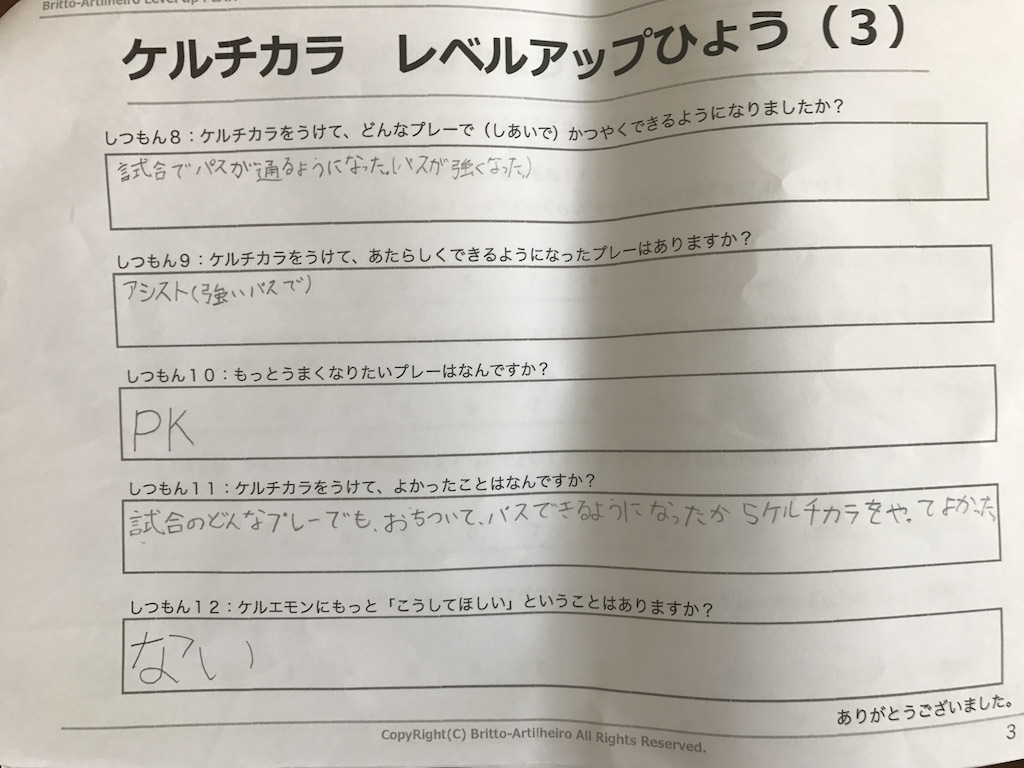 Britto-Artilheiro Level up
ケルチカラ　レベルアップひょう（3）
しつもん8：ケルチカラをうけて、どんなプレーで（しあいで）かつやくできるようになりましたか？
試合でパスが通るようになった。(パスが強くなった。)
しつもん9：ケルチカラをうけて、あたらしくできるようになったプレーはありますか？
アシスト(強いパスで)
しつもん10：もっとうまくなりたいプレーはなんですか？
PK
しつもん11：ケルチカラをうけて、よかったことはなんですか？
試合のどんなプレーでも、おちついて、パスできるようになったからケルチカラをやってよかった。
しつもん12：ケルエモンにもっと「こうしてほしい」ということはありますか？
ない
ありがとうございました。
CopyRight(C) Britto-Artilheiro All Rights Reserved.
3